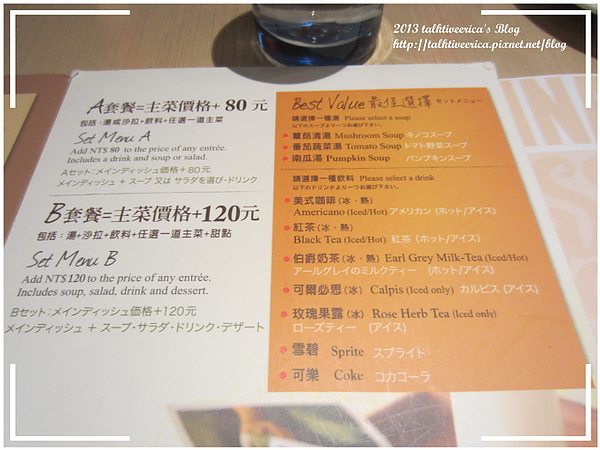 2013 talktiveerica's Blog
http://talktiveerica.pixnet.net/blog
A套餐=主菜價格+ 80 元
包括：湯或沙拉+飲料+任選一道主菜
Set Menu A
Add NT$ 80 to the price of any entrée.
Includes a drink and soup or salad.
Aセット：メインディッシュ価格＋80元
メインディッシュ ＋ スープ 又は サラダを選び・ドリンク
B套餐=主菜價格+120元
包括：湯+沙拉+飲料+任選一道主菜+甜點
Set Menu B
Add NT$120 to the price of any entrée.
Includes soup, salad, drink and dessert.
Bセット：メインディッシュ価格＋120元
メインディッシュ ＋ スープ・サラダ・ドリンク・デザート
Best Value 最佳選擇 セットメニュー
請選擇一種湯 Please select a soup
以下のスープより一つお選びください
蘑菇清湯 Mushroom Soup キノコスープ
番茄蔬菜湯 Tomato Soup トマト野菜スープ
南瓜湯 Pumpkin Soup パンプキンスープ
請選擇一種飲料 Please select a drink
以下のドリンクより一つお選びください
美式咖啡 (冰、熱)
Americano (Iced/Hot) アメリカン (ホット/アイス)
紅茶 (冰、熱)
Black Tea (Iced/Hot) 紅茶 (ホット/アイス)
伯爵奶茶 (冰、熱) Earl Grey Milk-Tea (Iced/Hot)
アールグレイのミルクティー (ホット/アイス)
可爾必思 (冰) Calpis (Iced only) カルピス (アイス)
玫瑰果露 (冰) Rose Herb Tea (Iced only)
ローズティー (アイス)
雪碧 Sprite スプライト
可樂 Coke コカコーラ